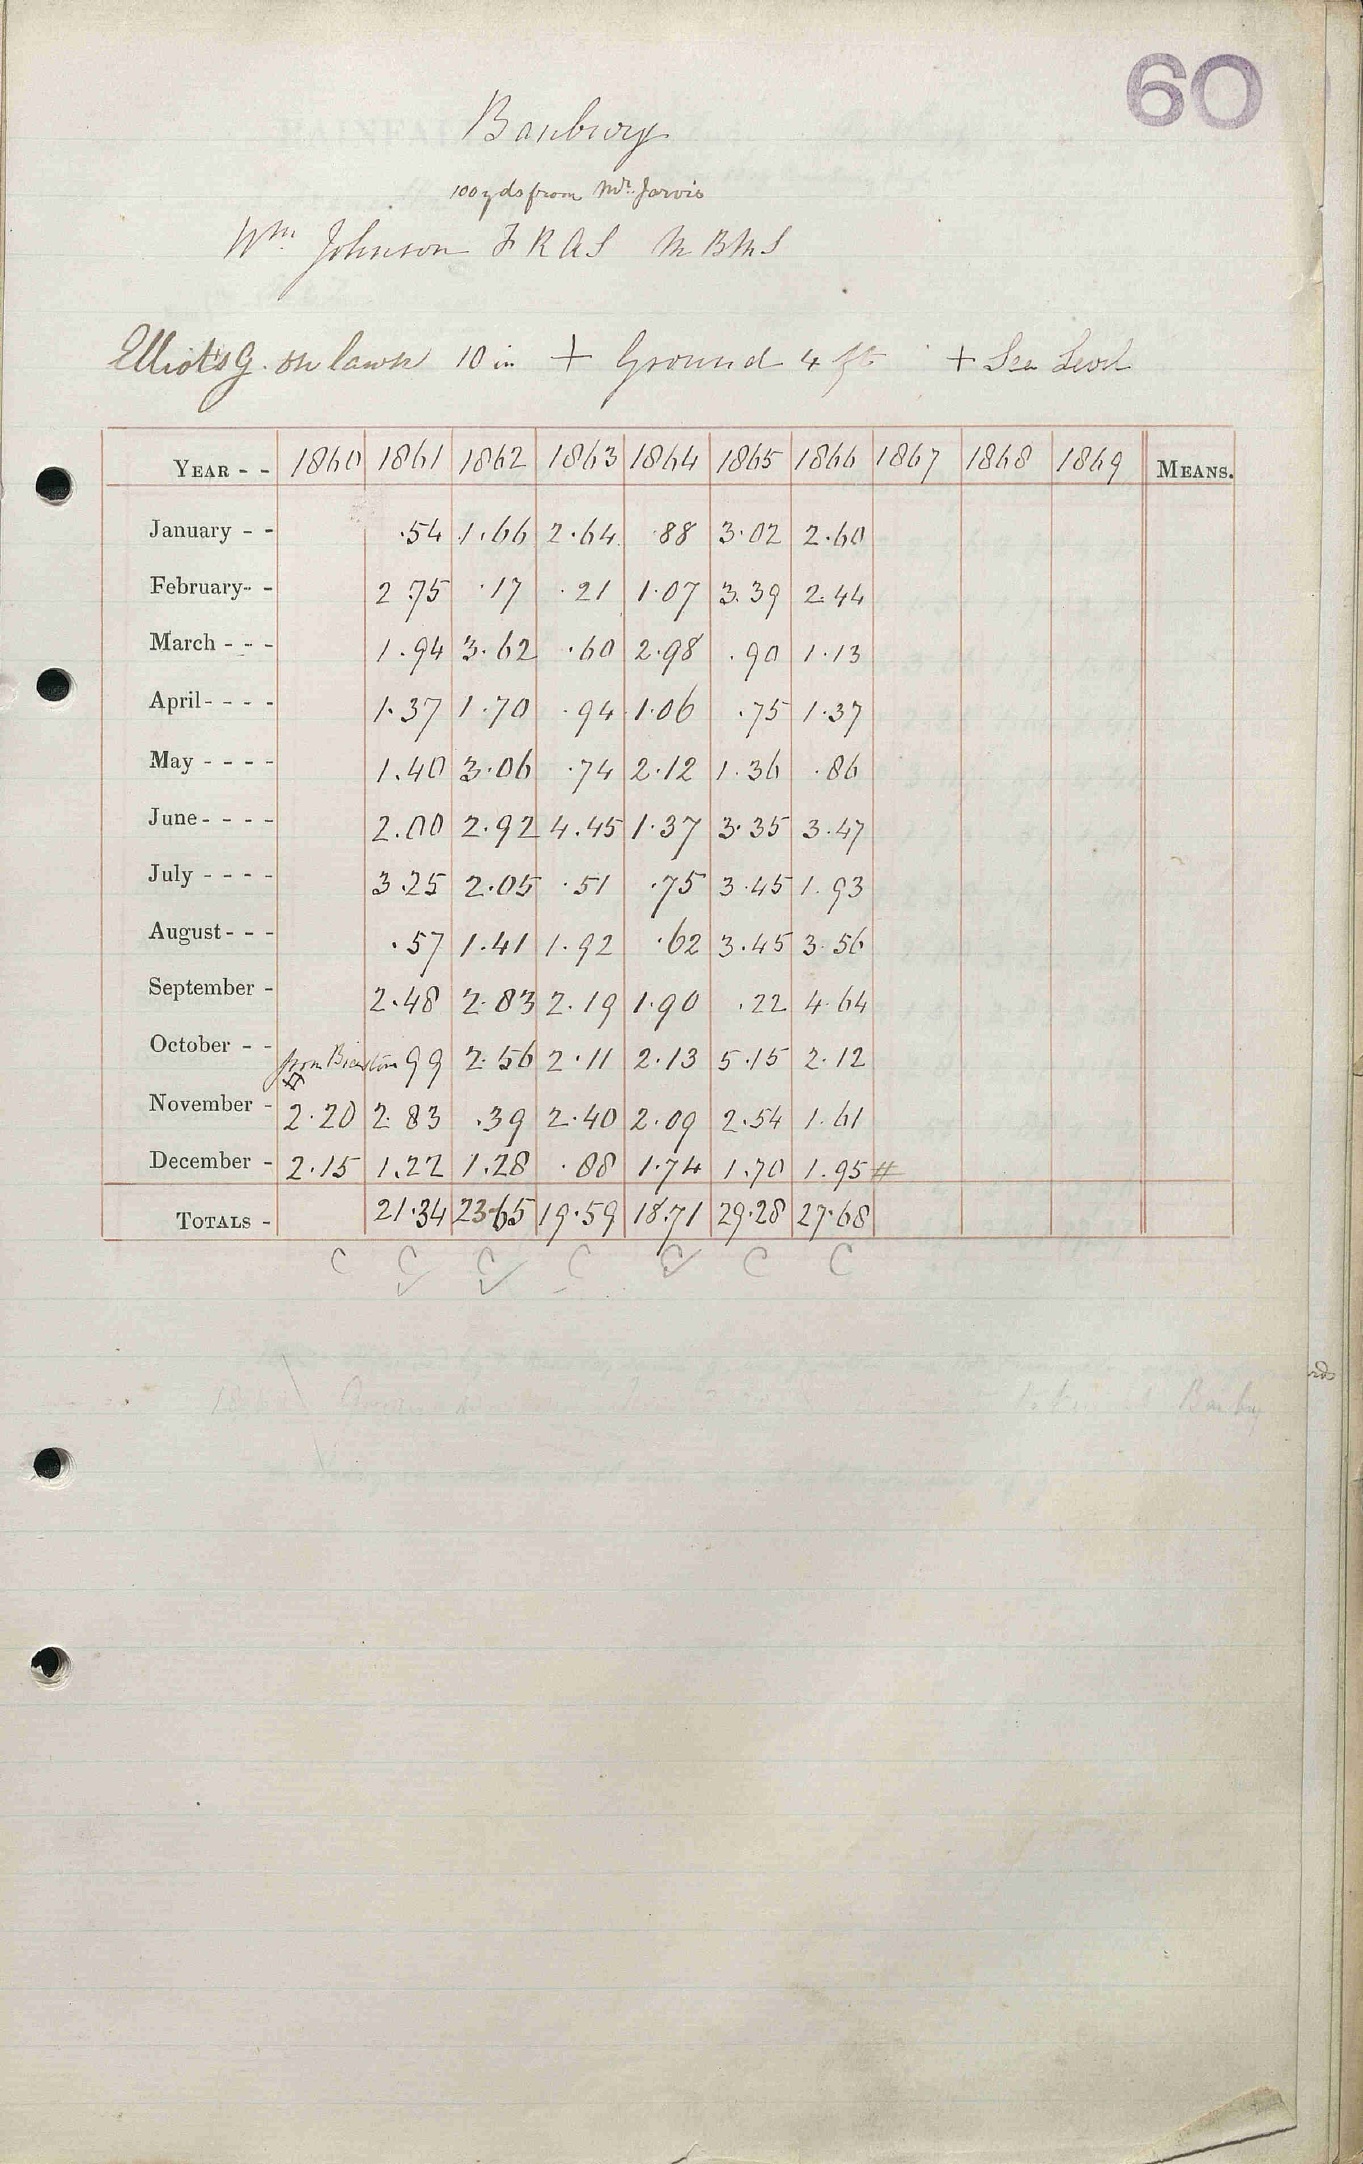 60
Banbury
100 yds from Mr. Jarvis
Wm Johnson F R A S M B M S
Elliots G. on lawn 10 in + Ground 4 ft + Sea Level
YEAR - - 1860 1861 1862 1863 1864 1865 1866 1867 1868 1869 MEANS.
January - - .54 1.66 2.64 .88 3.02 2.60
February - - 2.75 .17 .21 1.07 3.39 2.44
March - - - 1.94 3.62 .60 2.98 .90 1.13
April - - - - 1.37 1.70 .94 1.06 .75 1.37
May - - - - 1.40 3.06 .74 2.12 1.36 .86
June - - - - 2.00 2.92 4.45 1.37 3.35 3.47
July - - - - 3.25 2.05 .51 .75 3.45 1.93
August - - - .57 1.41 1.92 .62 3.45 3.56
September - 2.48 2.83 2.19 1.90 .22 4.64
October - - from 99 2.56 2.11 2.13 5.15 2.12
November - 2.20 2.83 .39 2.40 2.09 2.54 1.61
December - 2.15 1.22 1.28 .88 1.74 1.70 1.95 #
TOTALS - 21.34 23.65 19.59 18.71 29.28 27.68
C C C C C C C